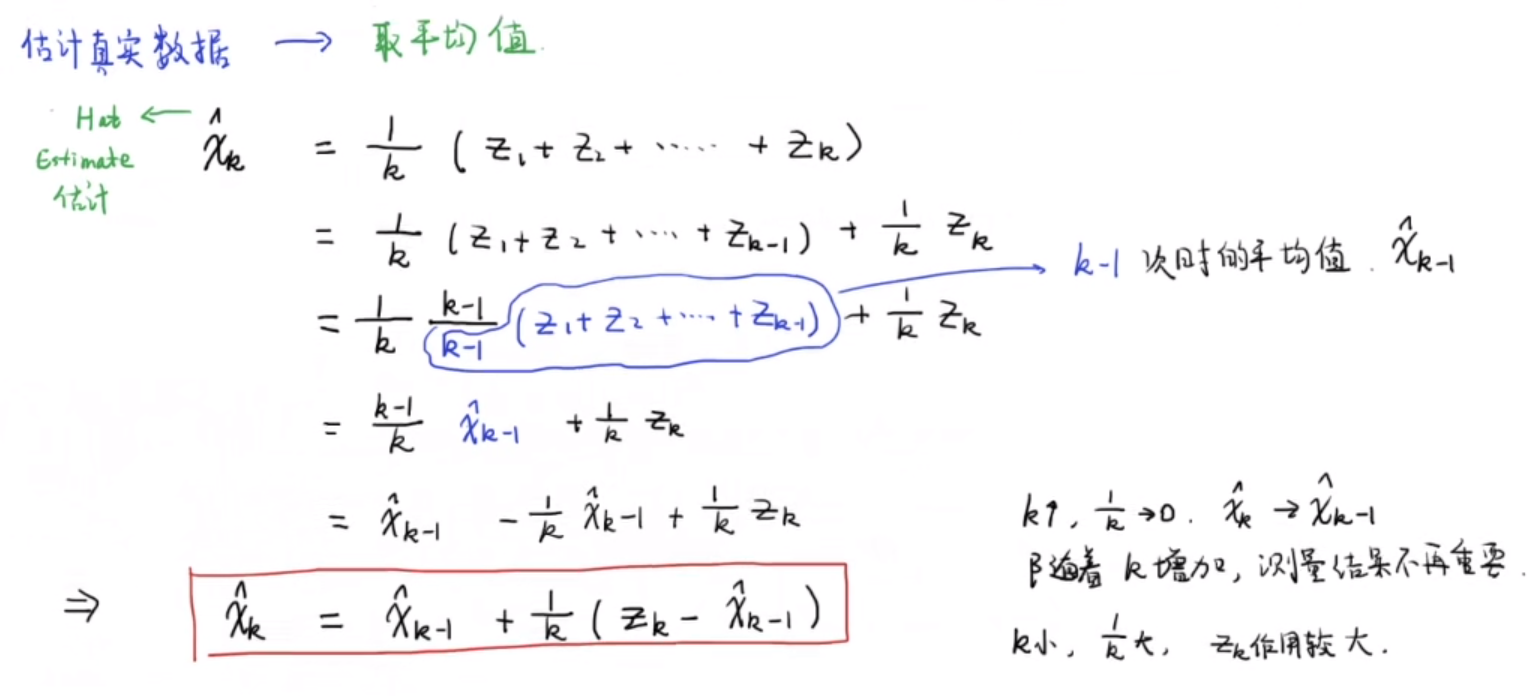 估计真实数据 → 取平均值.
Hat ← x̂ₖ = 1/k ( z₁ + z₂ + ····· + zₖ )
Estimate
估计
= 1/k ( z₁ + z₂ + ···· + zₖ₋₁ ) + 1/k zₖ
= 1/k (k-1)/(k-1) ( z₁ + z₂ + ···· + zₖ₋₁ ) + 1/k zₖ → k-1 次时的平均值. x̂ₖ₋₁
= (k-1)/k x̂ₖ₋₁ + 1/k zₖ
= x̂ₖ₋₁ - 1/k x̂ₖ₋₁ + 1/k zₖ
⇒ x̂ₖ = x̂ₖ₋₁ + 1/k ( zₖ - x̂ₖ₋₁ )
k↑, 1/k → 0. x̂ₖ → x̂ₖ₋₁
随着 k 增加, 测量结果不再重要.
k小, 1/k 大, zₖ作用较大.